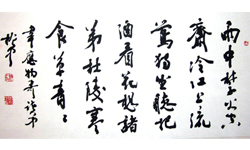 雨中禁火空
齋冷江上流
鶯獨坐聽把
酒看花想諸
弟杜陵寒
食草青青
韋應物寄諸弟